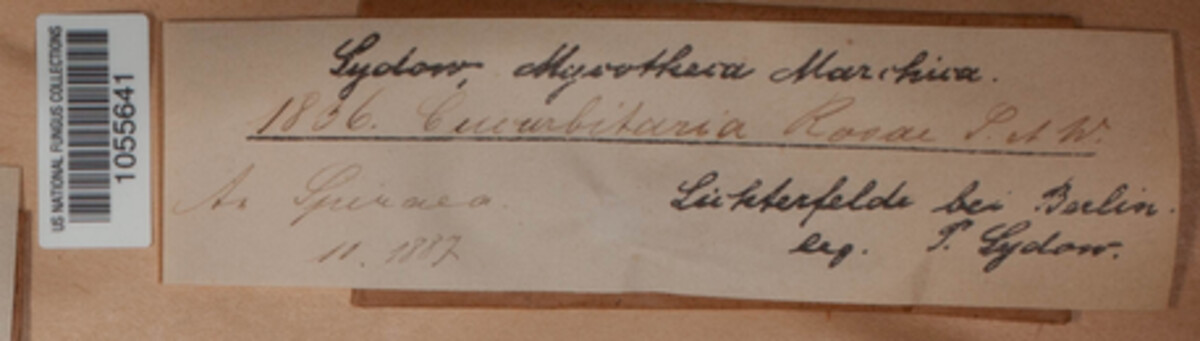 US NATIONAL FUNGUS COLLECTIONS
1055641
Sydow, Mycotheca Marchica.
1836. Cucurbitaria Rosae
An Spiraea.
11. 1887
Lichterfelde bei Berlin.
leg. P. Sydow.